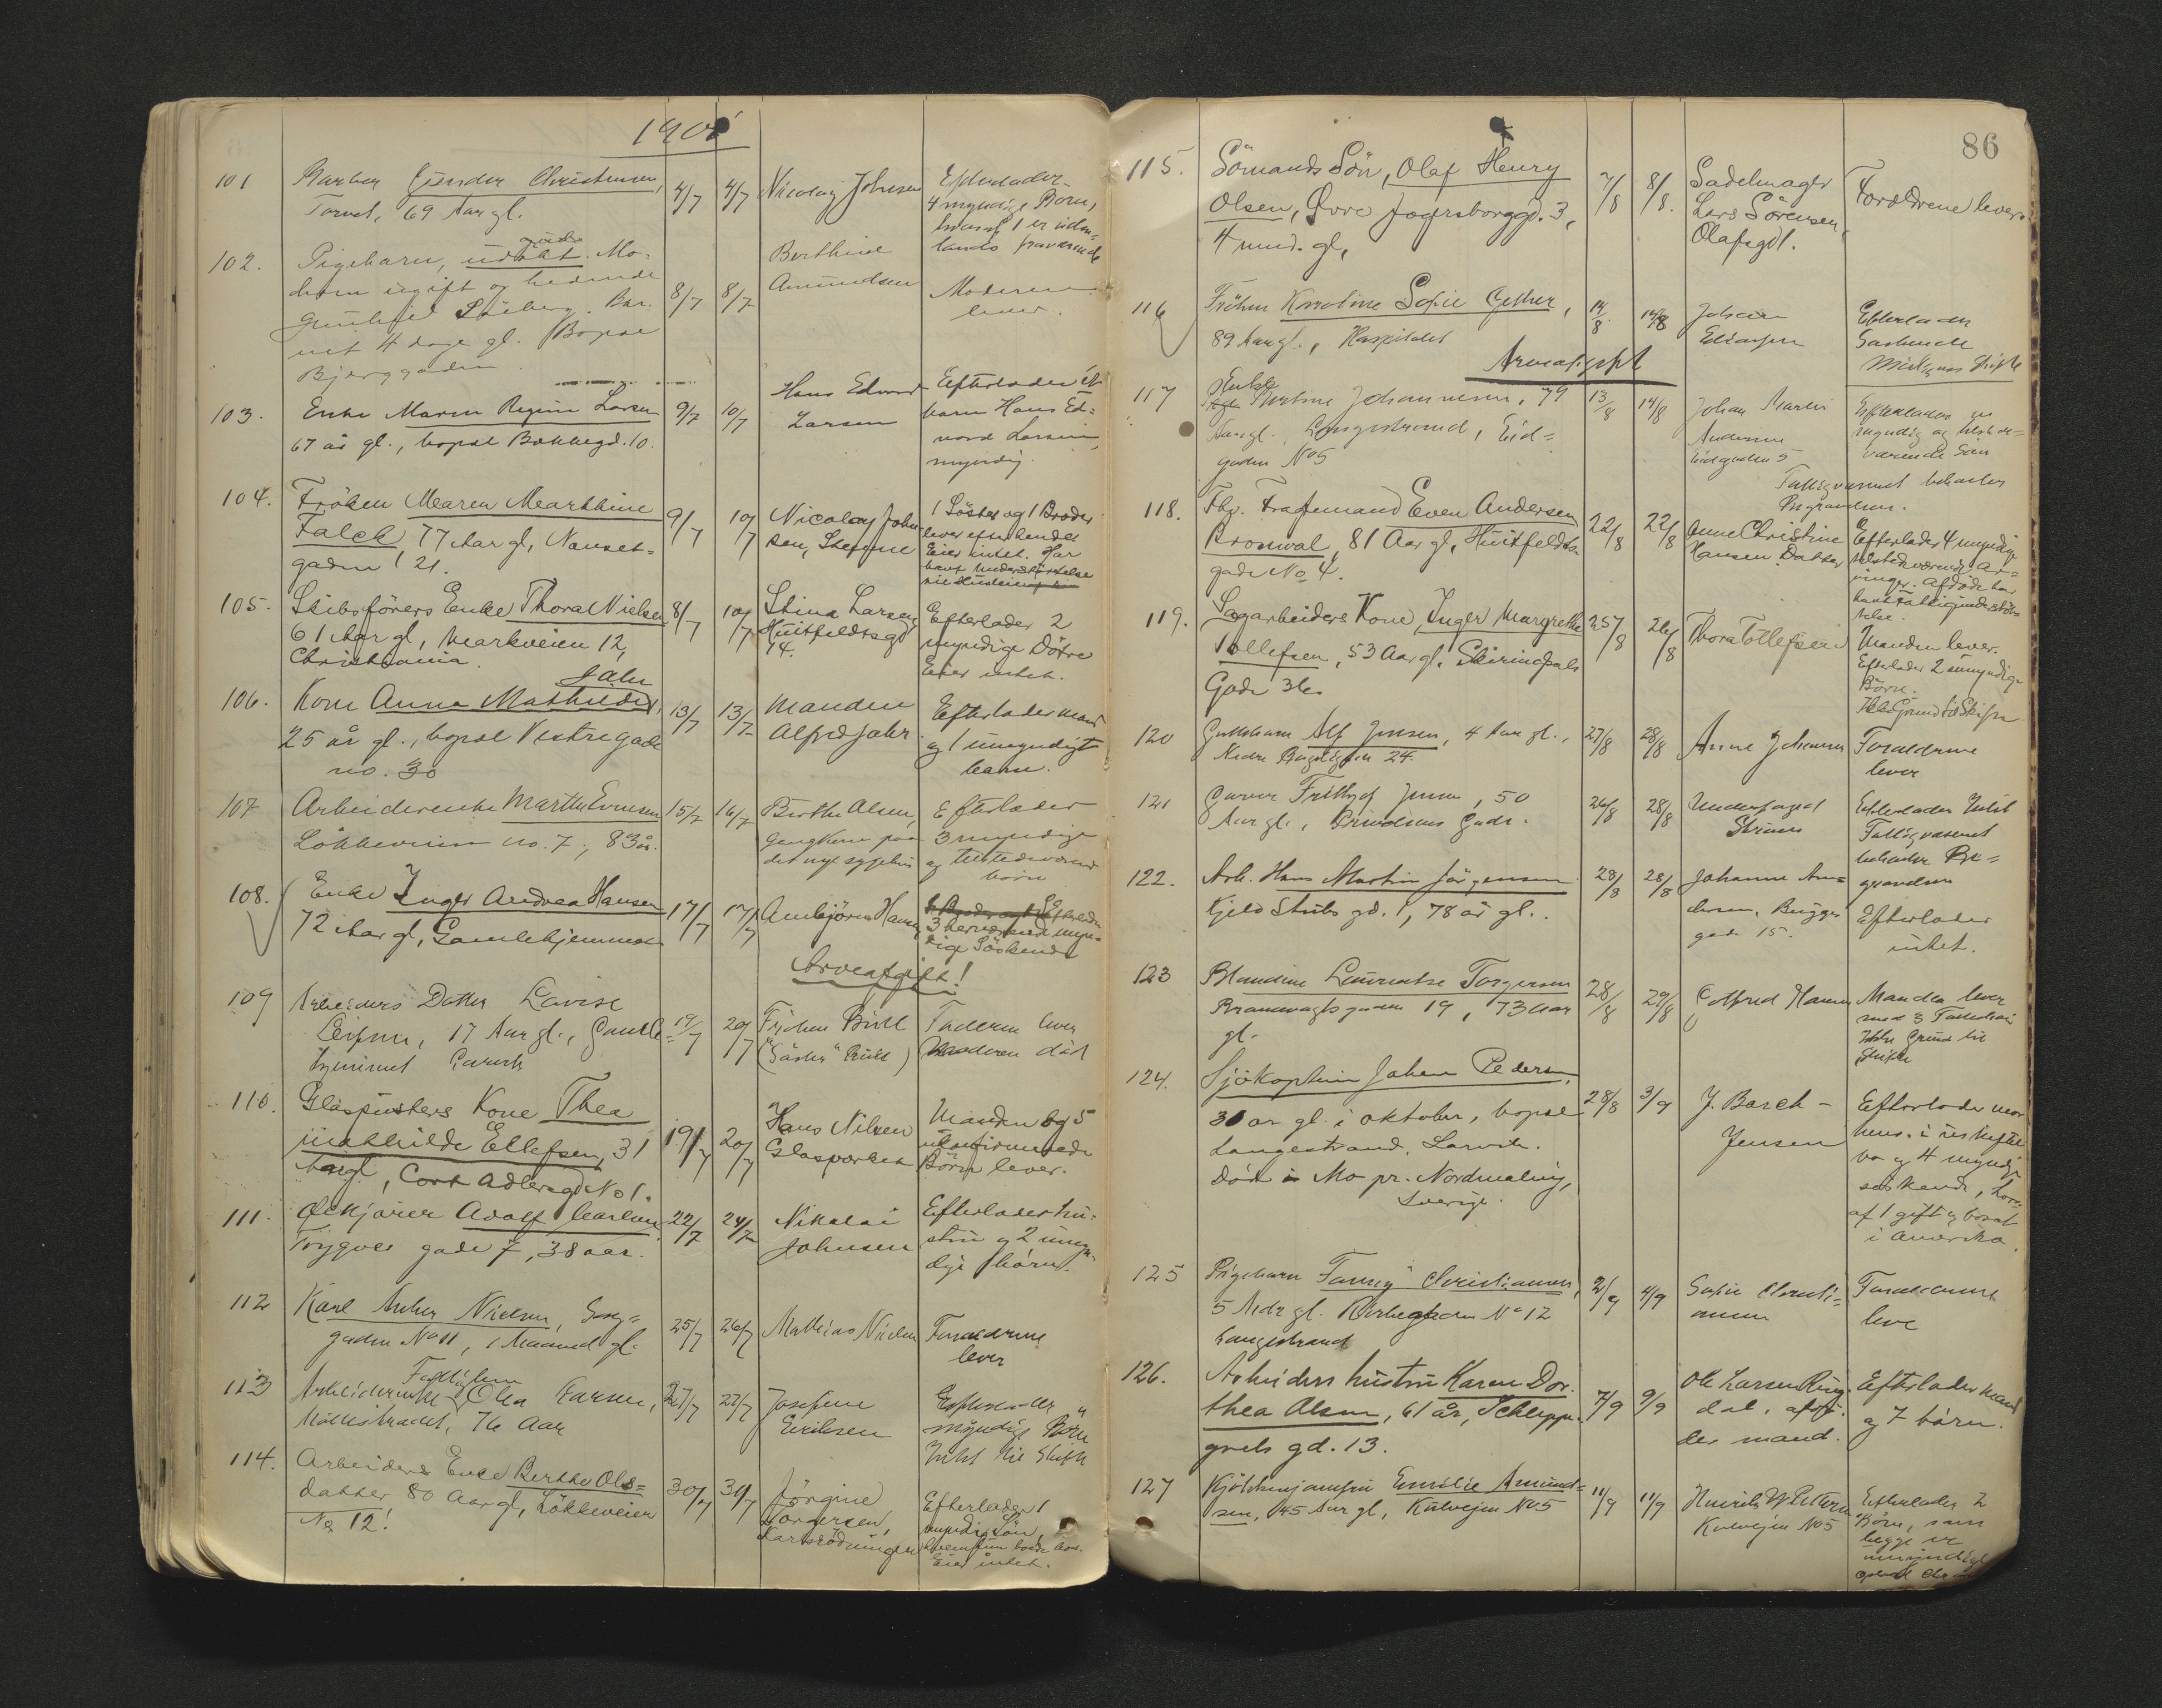 190
101 Barber Gunder Christensen, 4/7 4/7 Nicolay Johnsen Efterlader
Torvet, 69 Aar gl. 4 myndige Børn,
hvoraf 1 er uden-
lands fraværende
102. Pigebarn, udøbt. Mo- 8/7 8/7 Berthine Amundsen Moderen lever.
deren ugift og hedende
Gunhild Bar-
net 4 dage gl. Bopæl
Bjerggaden.
103. Enke Maren Regine Larsen 9/7 10/7 Hans Edvard Larsen Efterlader et
67 år gl., bopæl Bakkegd. 10. barn Hans Ed-
vard Larsen,
myndig.
104. Frøken Maren Marthine 9/7 10/7 Nicolay John- 1 Söster og 1 Broder
Falck, 77 Aar gl, Nanset- sen, lever efter hende.
gaden 21. Eier intet. Har
havt Understøttelse
105. Skibsförers Enke Thora Nielsen 8/7 10/7 Stina Larsen, Efterlader 2
61 Aar gl, Markveien 12, Huitfeldtsgd myndige Döttre
Christiania. 14. Eier intet.
Jahr
106. Kone Anna Mathilde, 13/7 13/7 Manden Efterlader mand
25 år gl., bopæl Vestregade Alfred Jahr og 1 umyndigt
no. 30 barn.
107 Arbeiderenke Marthe Evensen 15/7 16/7 Berthe Olsen, Efterlader
Lökkeveien no. 7, 83 år. Gangkone paa 3 myndige
det nye sygehus og tilstedeværende
börn
108. Enke Inger Andrea Hansen 17/7 17/7 Anbjörn Hansen Efterlader
72 Aar gl, Gamlehjemmet 3 herværende myn-
dige Söskende
Arveafgift!
109 Arbeiders Datter Lovise 19/7 20/7 Frøken Faderen lever
17 Aar gl., Gamle- ("Söster") Moderen død
hjemmet Larvik
110. Glaspusters Kone Thea 19/7 20/7 Hans Nilsen Manden og 5
Mathilde Ellefsen, 31 Glasværket ukonfirmerede
Aar gl, Cort Adlersgd No 1. Børn lever.
111. Adolf Carlsen 22/7 24/7 Nikolai Efterlader hu-
Trygves gade 7, 38 aar. Johnsen stru og 2 umyn-
dige börn.
112 Karl Anker Nielsen, 25/7 26/7 Mathias Nielsen Forældrene
gaden No 11, 1 Maaned gl. lever
113 Arbeiderenke Fattiglem Olea Larsen, 27/7 27/7 Josefine Efterlader
76 Aar Eriksen myndige Børn
Intet til Skifte
114. Arbeiders Enke Berthe Ols- 30/7 31/7 Jörgine Efterlader 1
datter 80 Aar gl, Lökkeveien Torgersen, myndig Sön,
No 12! hvem hun boede hos.
Eier intet.
86
115. Sömands Sön, Olaf Henry 7/8 8/8. Sadelmager Forældrene lever
Olsen, Øvre Jegersborggd. 3, Lars Sörensen,
4 mnd. gl, Olafsgd 1.
116 Fröken Karoline Sofie 14/8. 14/8 Johan Efterlader
89 Aar gl., Hospitalet Søskende
Arveafgift
117 Enke Johannesen, 79 13/8 14/8 Johan Martin Efterlader en
Aar gl., Langestrand, Eid- Andersen myndig og tilstede-
gaden No 5 Eidgaden 5 værende Sön
Fattigvæsenet bekoster
Begravelsen.
118. Fhv. Fragtemand Even Andersen 22/8 22/8 Anne Christine Efterlader 4 myndige
Bronval, 81 Aar gl, Huitfeldts- Hansen Datter tilstedeværende Ar-
gade No 4. vinger. Afdøde har
havt Fattigunderstöt-
telse.
119. Sagarbeiders Kone, Inger Margrethe 25/8 26/8 Thora Tollefsen Manden lever.
Tollefsen, 53 Aar gl, Skiringsals Efterlader 2 umyndige
Gade 36. Börn.
Ikke Grund til Skifte
120 Guttebarn Alf Jensen, 4 Aar gl., 27/8 28/8 Anne Johansen Forældrene
Nedre 24. lever
121 Garver Frithjof Jensen, 50 26/8 28/8 Underfoged Efterlader Intet
Aar gl., Prindsens Gade. Fattigvæsenet
bekoster Be-
gravelsen
122. Arb. Hans Martin Jörgensen 28/8 28/8 Johanne An- Efterlader
Kjeld Stubs gd. 1, 78 år gl. dersen, Brygge- intet.
gade 15.
123 Blandine Laurentse Torgersen 28/8 29/8 Gotfred Hansen Manden lever
Brandvagtsgaden 19, 73 aar Ikke Grund til
gl. Skifte
124. Sjökaptein Johan Pedersen, 28/8 3/9 J. Barch- Efterlader mor
30 år gl. i oktober, bopæl Jensen hens. i uskiftet
Langestrand, Larvik. bo og 4 myndige
Död i Mo pr. Nordmaling, söskende, hvor-
Sverige. af 1 gift og bosat
i Amerika.
125 Pigebarn Fanny Christiansen, 2/9 4/9 Sofie Christi- Forældrene
5 Mdr gl. Kirkegaden No 12 ansen leve
Langestrand
126. Arbeiders hustru Karen Dor- 7/9 9/9 Ole Larsen Ring- Efterlader mand
thea Olsen, 61 år, Schlepp- dal, afdö- og 7 börn.
grels gd. 13. des mand.
127 Emilie Amund- 11/9 11/9 Efterlader 2
sen, 45 Aar gl, Kulvejen No 5 Kulvejen No 5 Børn, som
begge er
umyndige